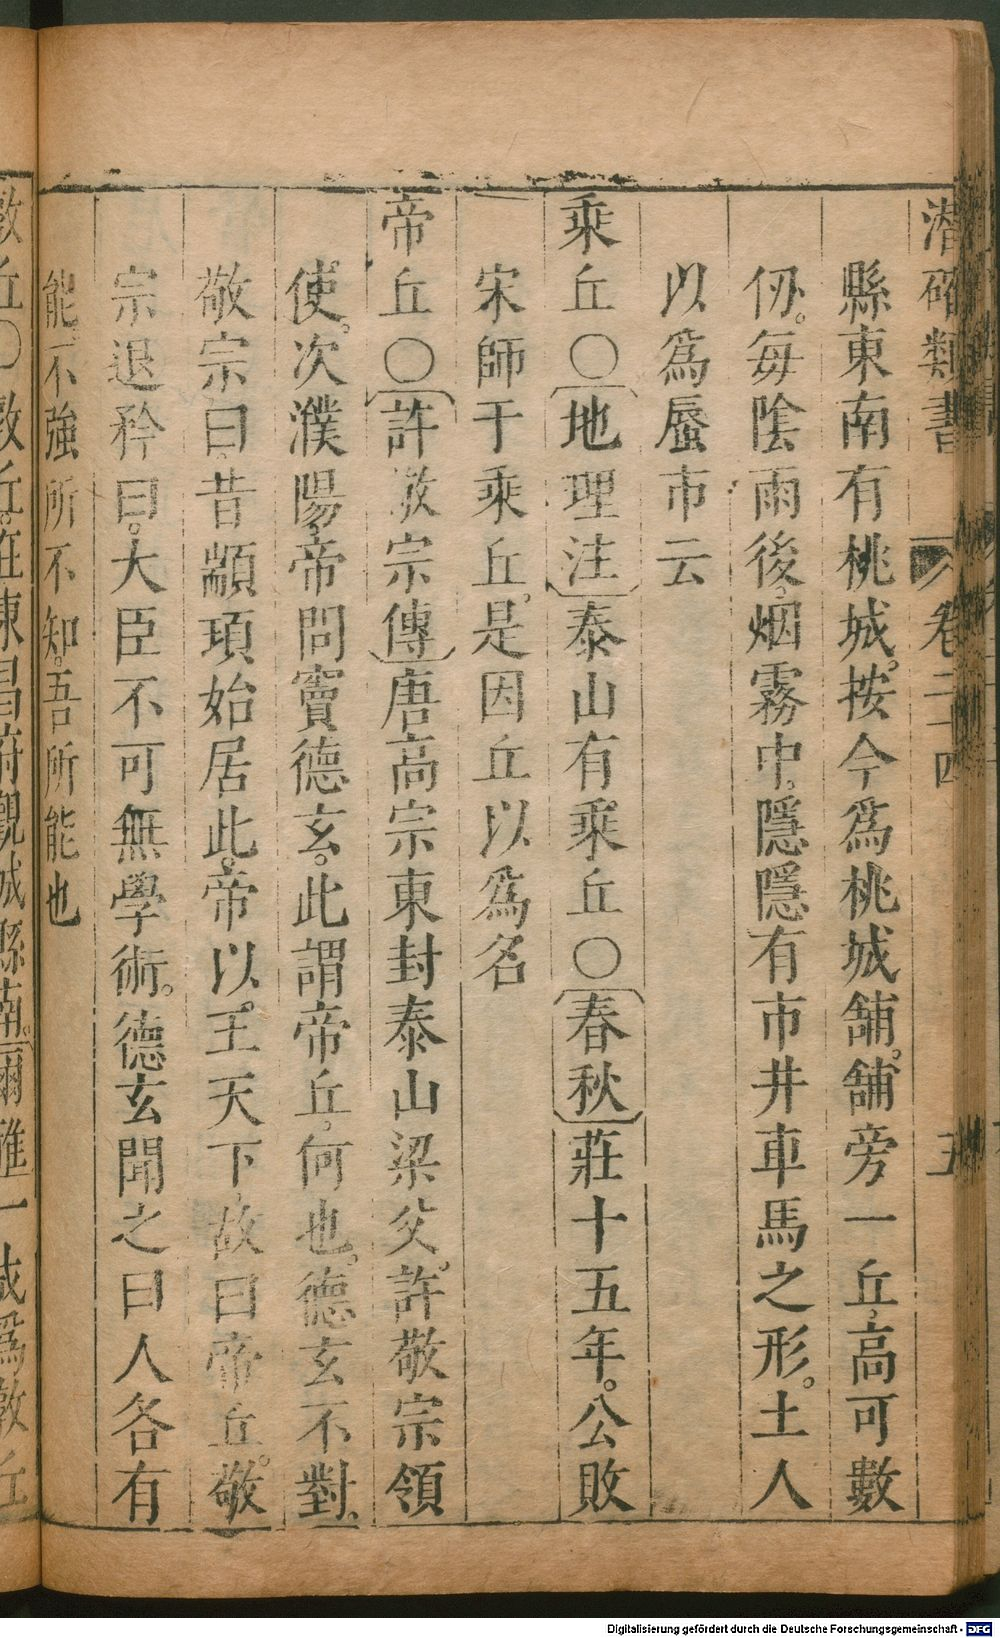 潛確類書 卷二十四 五
縣東南有桃城。按今爲桃城舖。舖旁一丘，高可數
仞。每陰雨後，烟霧中，隱隱有市井車馬之形。土人
以爲蜃市云
乘丘〇〔地理注〕泰山有乘丘〇〔春秋〕莊十五年。公敗
宋師于乘丘。是因丘以爲名
帝丘〇〔許敬宗傳〕唐高宗東封泰山梁父。許敬宗領
使。次濮陽，帝問竇德玄。此謂帝丘，何也。德玄不對，
敬宗曰，昔顓頊始居此。帝以。王天下，故曰帝丘。敬
宗退矜曰。大臣不可無學術。德玄聞之曰人各有
能，不強所不知。吾所能也
敦丘〇敦丘。在東昌府觀城縣南。爾雅一成爲敦丘
Digitalisierung gefördert durch die Deutsche Forschungsgemeinschaft - DFG